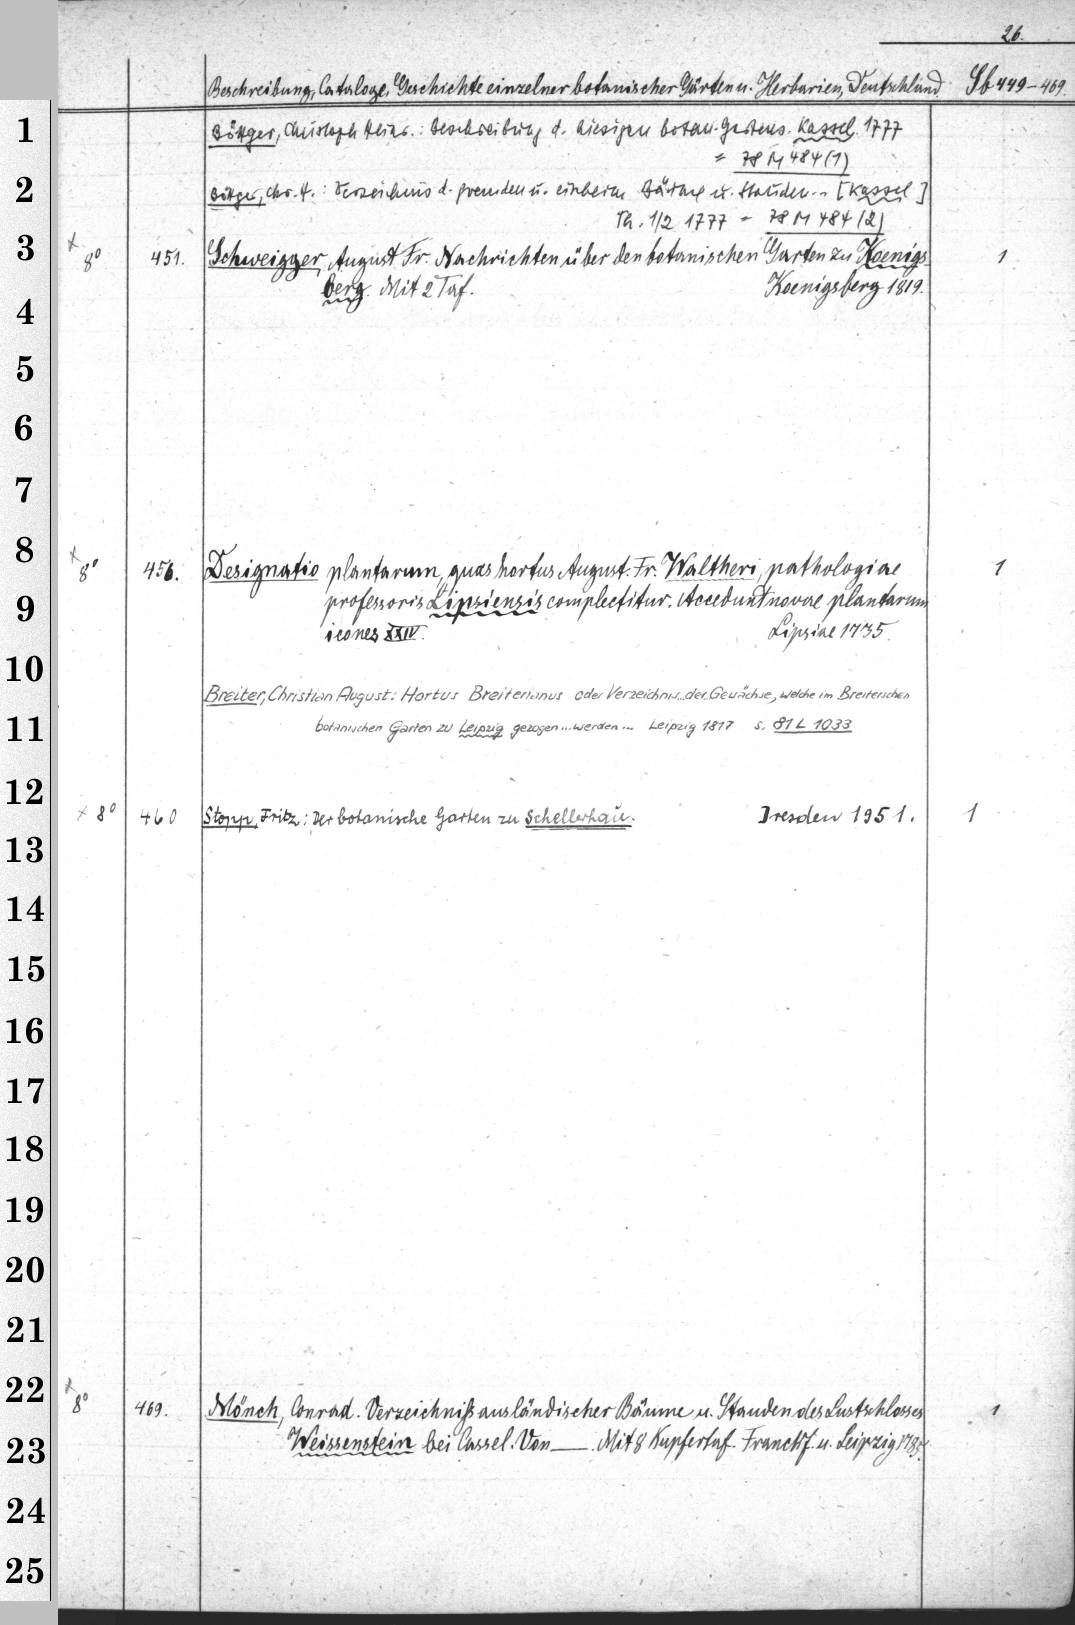 26.
Beschreibung, Cataloge, Geschichte einzelner botanischer Gärten u. Herbarien, Deutschland. Sb 449-469.
1
Böttger, Christoph Heinr.: Beschreibung d. hiesigen botan. Gartens. Kassel 1777
= 78 M 484 (1)
2
Böttger, Chr. H.: Verzeichnis d. fremden u. einheim. Bäume u. Stauden.. [Kassel]
Th. 1/2 1777 = 78 M 484 (2)
3
x 8° 451. Schweigger, August Fr. Nachrichten über den botanischen Garten zu Koenigs- 1
berg. Mit 2 Taf. Koenigsberg 1819.
4
5
6
7
8
x 8° 456. Designatio plantarum, quas hortus August. Fr. Waltheri, pathologiae 1
9
professoris Lipsiensis complectitur. Accedunt novae plantarum
icones XXIV. Lipsiae 1735.
10
Breiter, Christian August: Hortus Breiterianus oder Verzeichnis...der Gewächse, welche im Breiterschen
11
botanischen Garten zu Leipzig gezogen...werden... Leipzig 1817 s. 81 L 1033
12
x 8° 460 Stopp, Fritz: Der botanische Garten zu Schellerhau. Dresden 1951. 1
13
14
15
16
17
18
19
20
21
22
x 8° 469. Mönch, Conrad. Verzeichniß ausländischer Bäume u. Stauden des Lustschlosses 1
23
Weissenstein bei Cassel. Von ___. Mit 8 Kupfertaf. Franckf. u. Leipzig 1785.
24
25